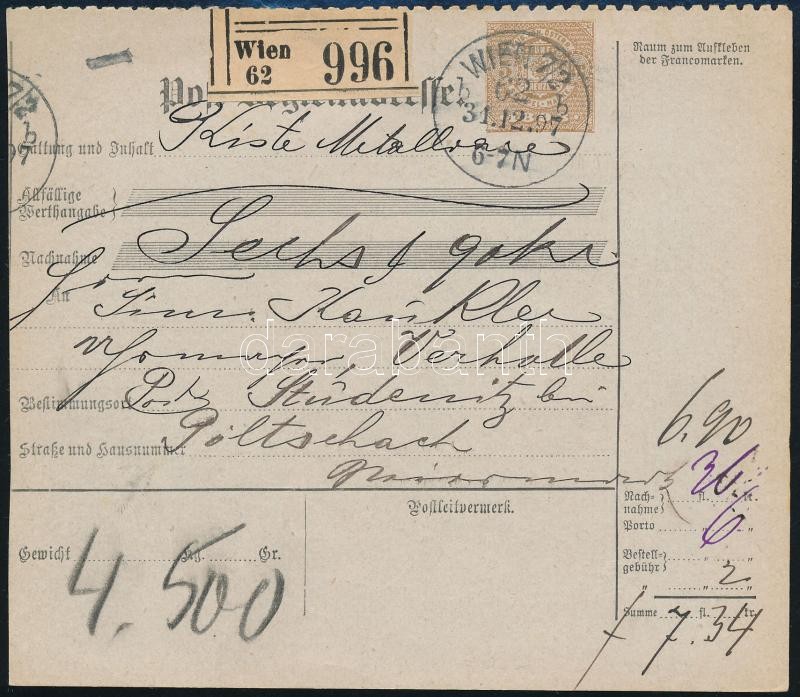 Wien
62
996
WIEN 7/2
62
b b
31.12.97
6-7N
7/2
b
97
Raum zum Aufkleben
der Francomarken.
Gattung und Inhalt Kiste Metallware
Allfällige
Werthangabe
Nachnahme Sechs f 90 kr
An
Kaukler
Bestimmungsort Post Studenitz bei
Straße und Hausnummer Pöltschach
6.90
Nach-
nahme fl. 36 kr.
Porto " 6 "
Bestell-
gebühr
" " 2 "
Summe fl. 7.34 kr.
Postleitvermerk.
Gewicht Kg. Gr.
4.500
darabanth